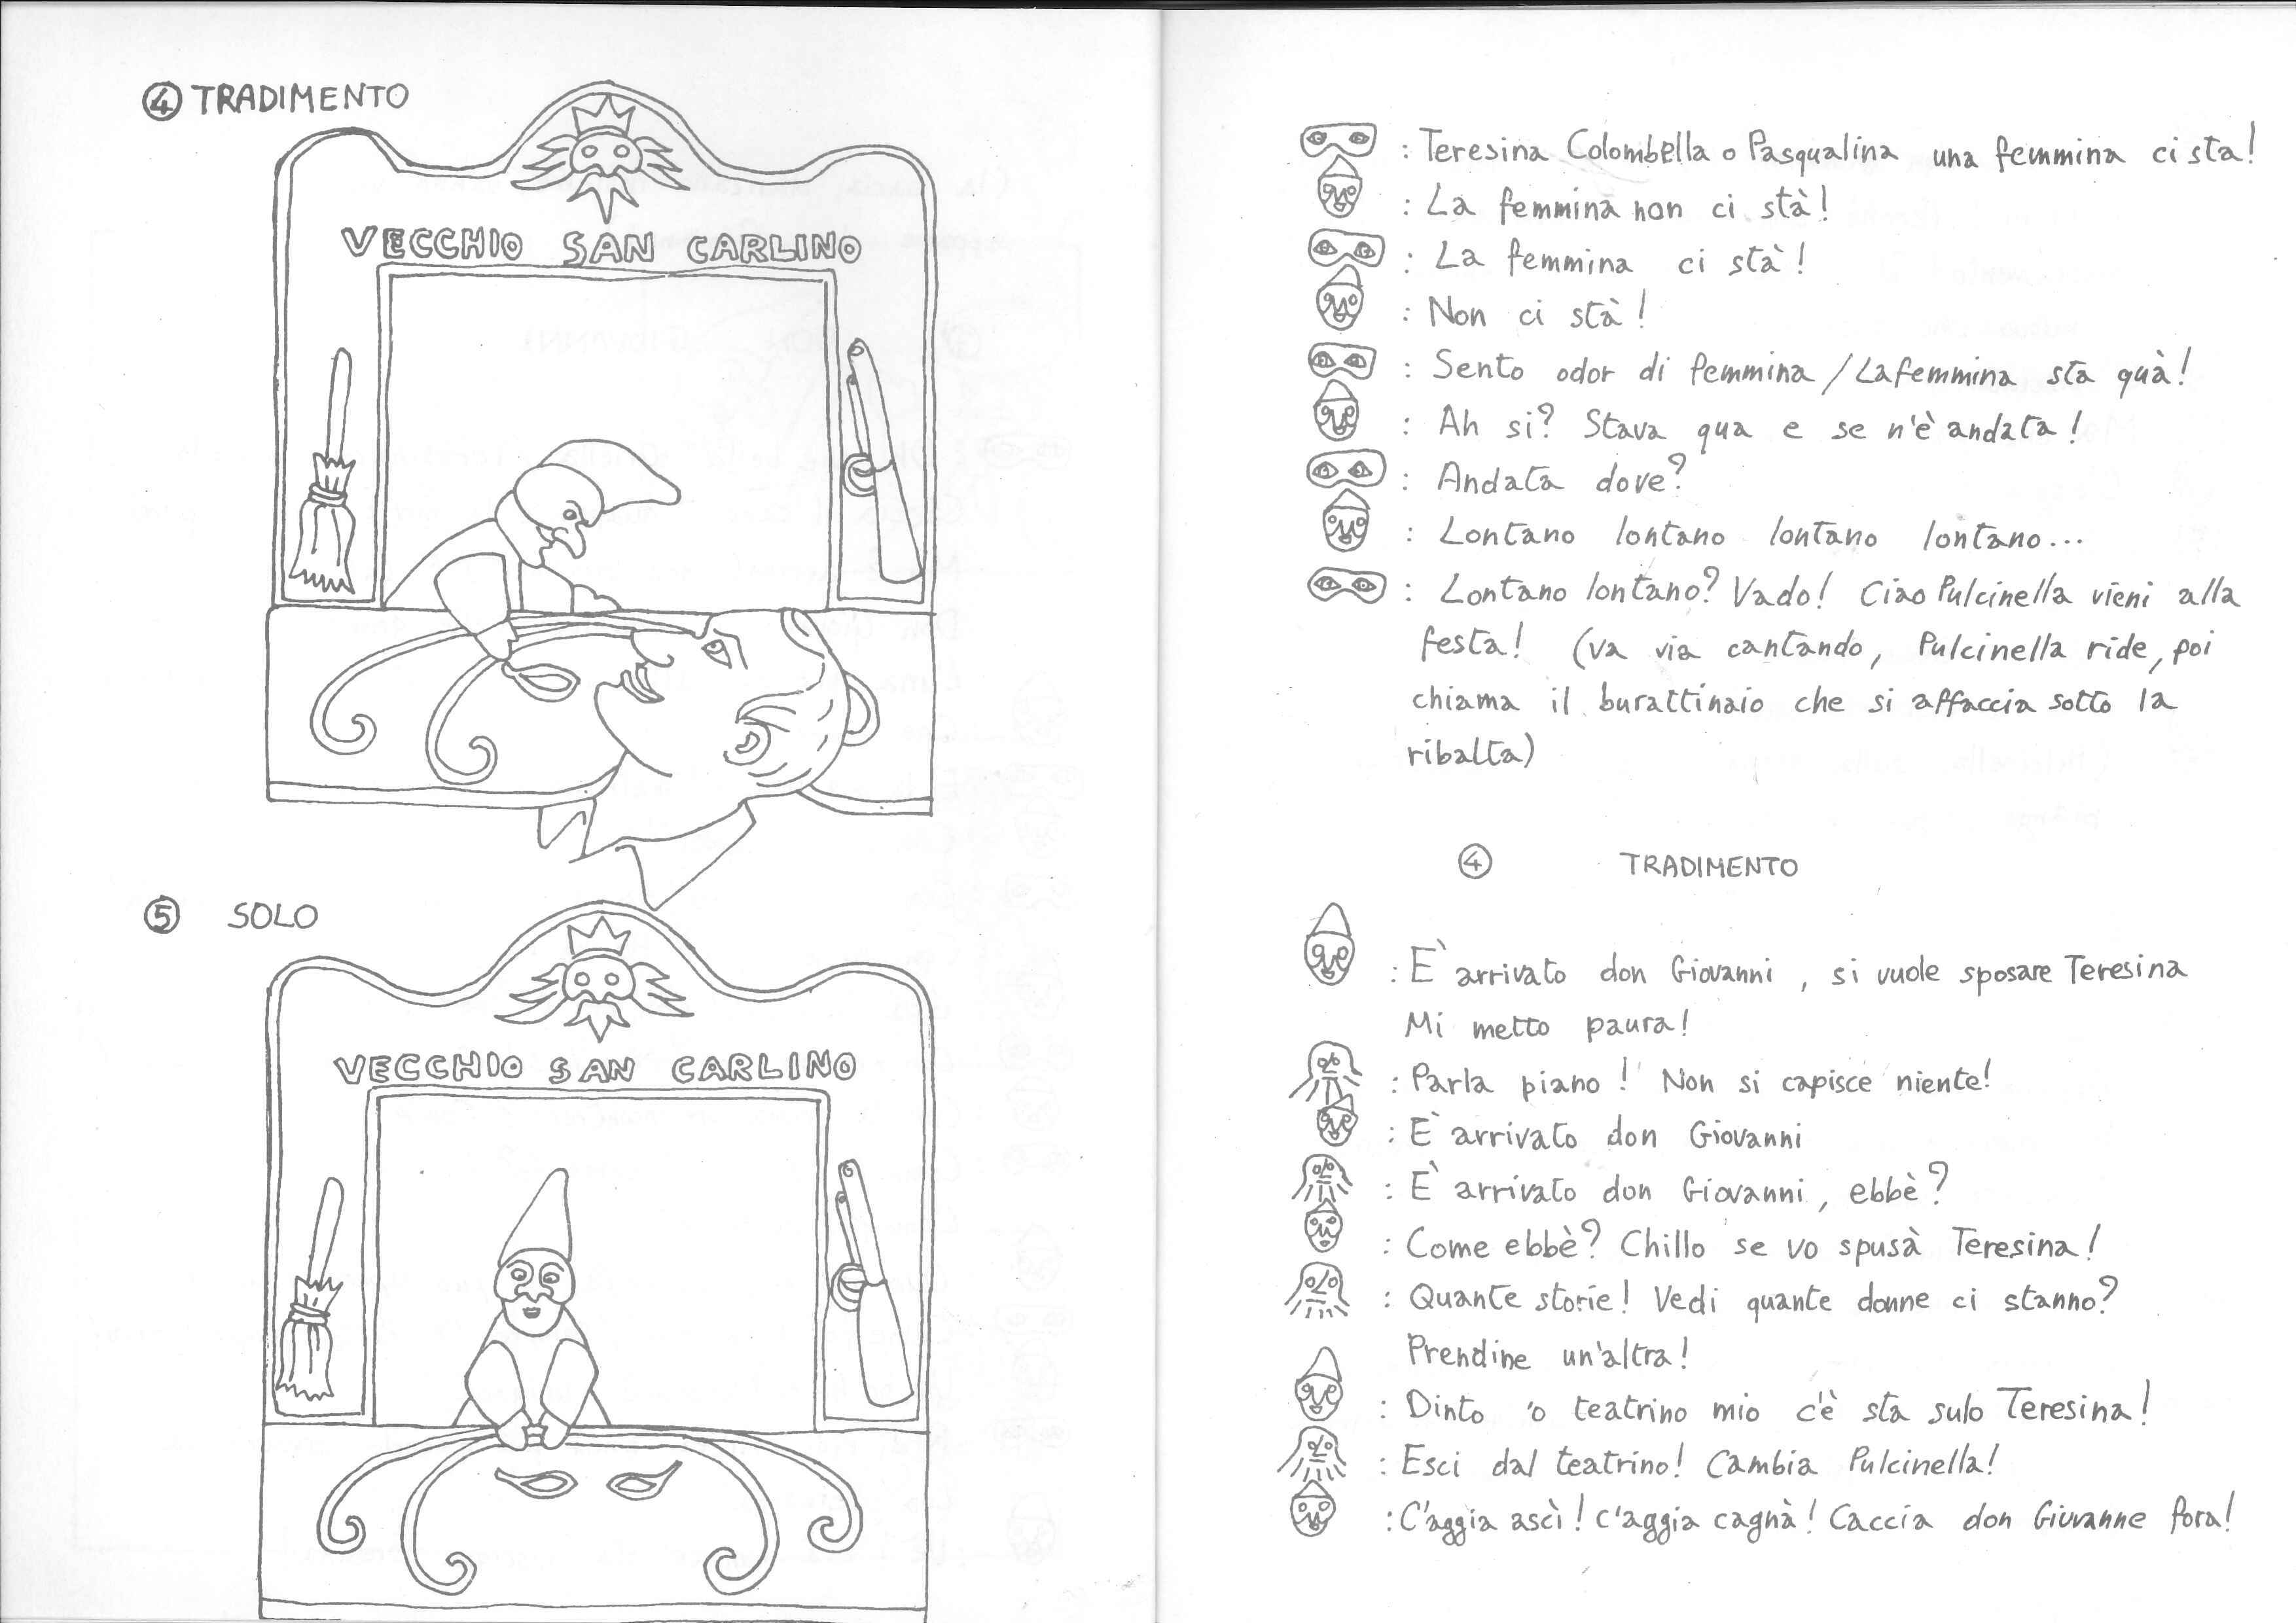 ④ TRADIMENTO
VECCHIO SAN CARLINO
⑤ SOLO
VECCHIO SAN CARLINO
: Teresina Colombella o Pasqualina una femmina ci sta!
: La femmina non ci stà!
: La femmina ci stà!
: Non ci stà!
: Sento odor di femmina / La femmina sta quà!
: Ah si? Stava qua e se n'è andata!
: Andata dove?
: Lontano lontano lontano lontano...
: Lontano lontano? Vado! Ciao Pulcinella vieni alla
festa! (va via cantando, Pulcinella ride, poi
chiama il burattinaio che si affaccia sotto la
ribalta)
④ TRADIMENTO
: E' arrivato don Giovanni, si vuole sposare Teresina
Mi metto paura!
: Parla piano! Non si capisce niente!
: E' arrivato don Giovanni
: E' arrivato don Giovanni, ebbè?
: Come ebbè? Chillo se vo spusà Teresina!
: Quante storie! Vedi quante donne ci stanno?
Prendine un'altra!
: Dinto 'o teatrino mio c'è sta sulo Teresina!
: Esci dal teatrino! Cambia Pulcinella!
: C'aggia ascì! c'aggia cagnà! Caccia don Giuvanne fora!